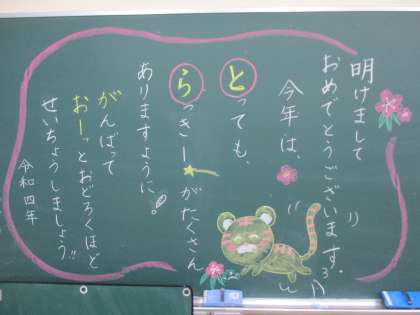 明けまして
おめでとうございます。
今年は、
とっても、
らっきーがたくさん
ありますように。
がんばって
おーっとおどろくほど
せいちょうしましょう!!
令和四年